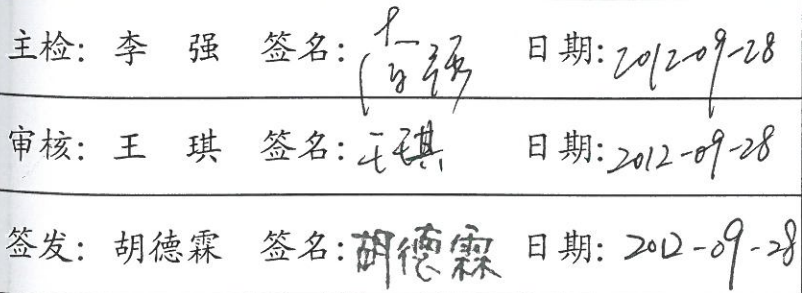 主检: 李 强 签名: 日期: 2012-09-28
审核: 王 琪 签名: 王琪 日期: 2012-09-28
签发: 胡德霖 签名: 胡德霖 日期: 2012-09-28